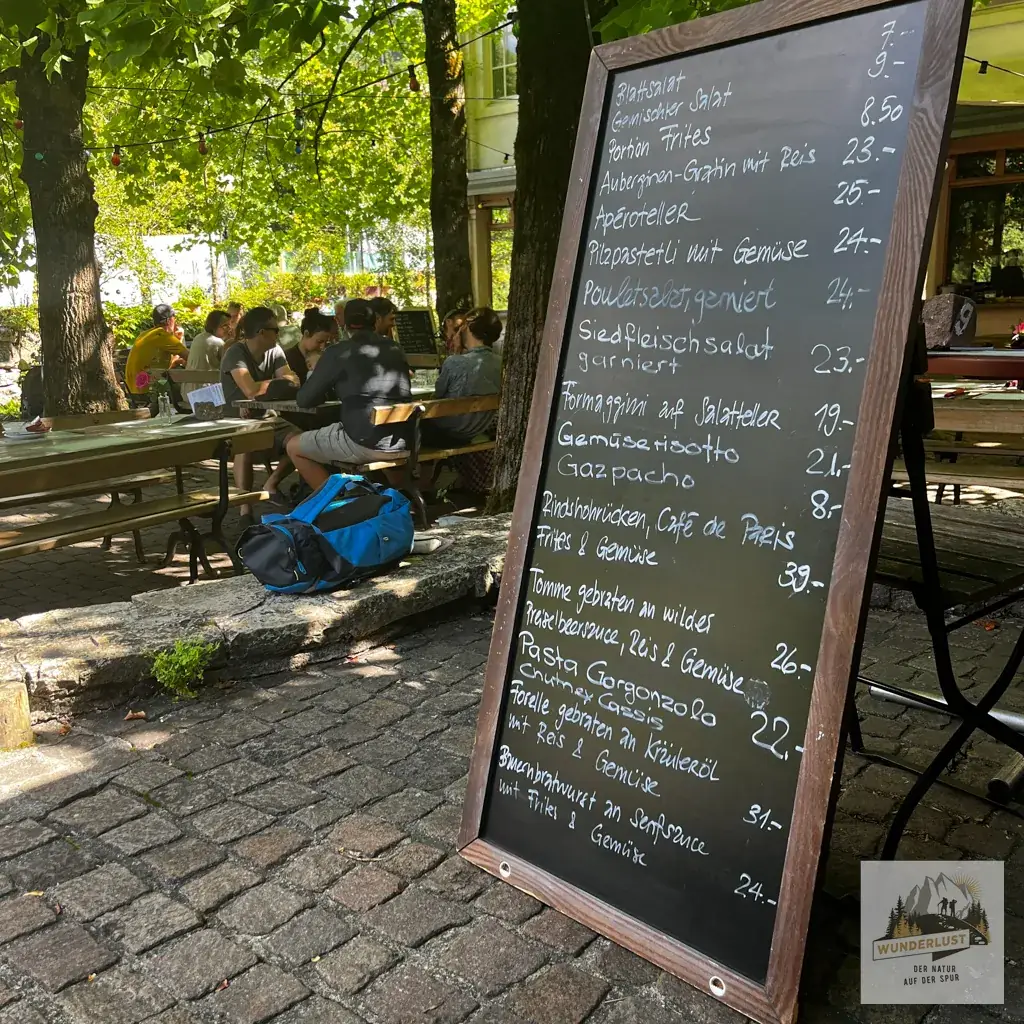 Blattsalat 7.-
Gemischter Salat 9.-
Portion Frites 8.50
Auberginen-Gratin mit Reis 23.-
Apéroteller 25.-
Pilzpastetli mit Gemüse 24.-
Pouletsalat, garniert 24.-
Siedfleischsalat
garniert 23.-
Formaggini auf Salatteller 19.-
Gemüserisotto 21.-
Gazpacho 8.-
Rindshohrücken, Café de Paris
Frites & Gemüse 39.-
Tomme gebraten an wilder
Preiselbeersauce, Reis & Gemüse 26.-
Pasta Gorgonzola
Chutney Cassis 22.-
Forelle gebraten an Kräuteröl
mit Reis & Gemüse 31.-
Bauernbratwurst an Senfsauce
mit Frites & Gemüse 24.-
9
WUNDERLUST
DER NATUR
AUF DER SPUR